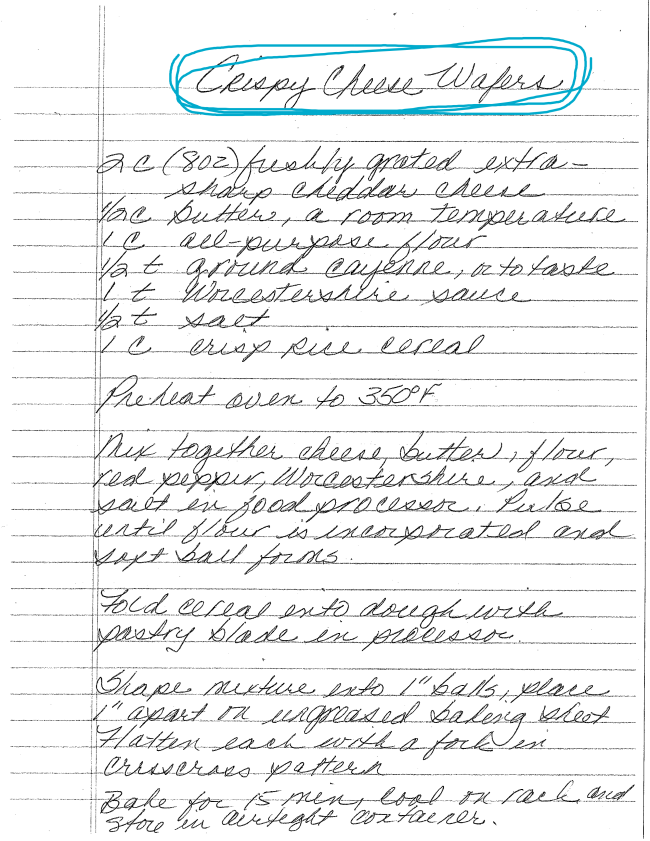 Crispy Cheese Wafers
2 c (8oz) freshly grated extra-
sharp cheddar cheese
1/2 c butter, a room temperature
1 c all-purpose flour
1/2 t ground cayenne, or to taste
1 t Worcestershire sauce
1/2 t salt
1 c crisp rice cereal
Preheat oven to 350°F
Mix together cheese, butter, flour,
red pepper, Worcestershire, and
salt in food processor. Pulse
until flour is incorporated and
soft ball forms.
Fold cereal into dough with
pastry blade in processor.
Shape mixture into 1" balls, place
1" apart on ungreased baking sheet
Flatten each with a fork in
crisscross pattern
Bake for 15 min, cool on rack and
store in airtight container.